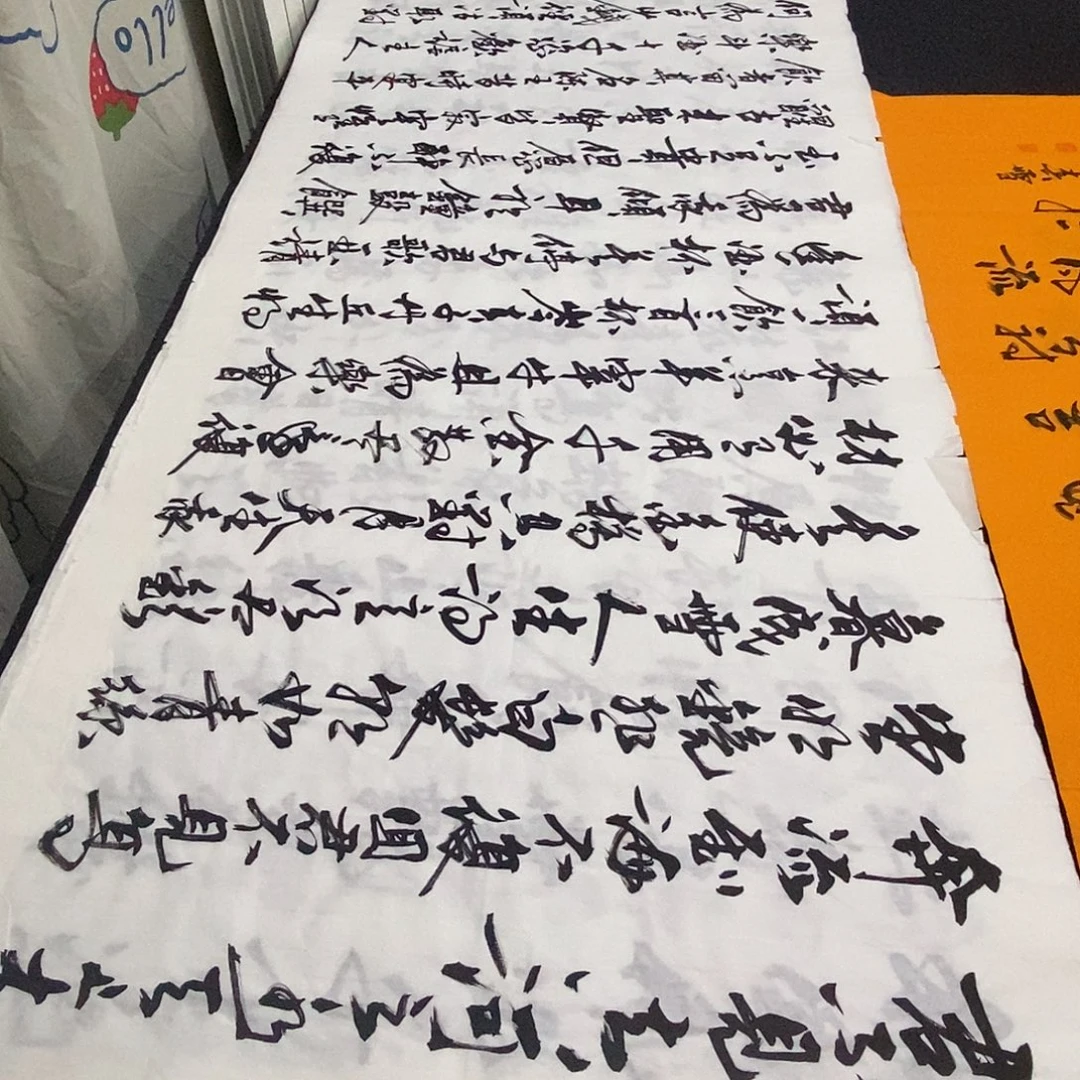 君不見黃河之水天上來
奔流到海不復回君不見高
堂明鏡悲白髮朝如青絲
暮成雪人生得意須盡歡
莫使金樽空對月天生我
材必有用千金散盡還復
來烹羊宰牛且為樂會
須一飲三百杯岑夫子丹丘生將
進酒杯莫停與君歌一曲請
君為我傾耳聽鐘鼓饌
玉不足貴但願長醉不復
醒古來聖賢皆寂寞惟
飲者留其名陳王昔時宴平
樂斗酒十千恣歡謔主人
何為言少錢徑須沽取對
ello